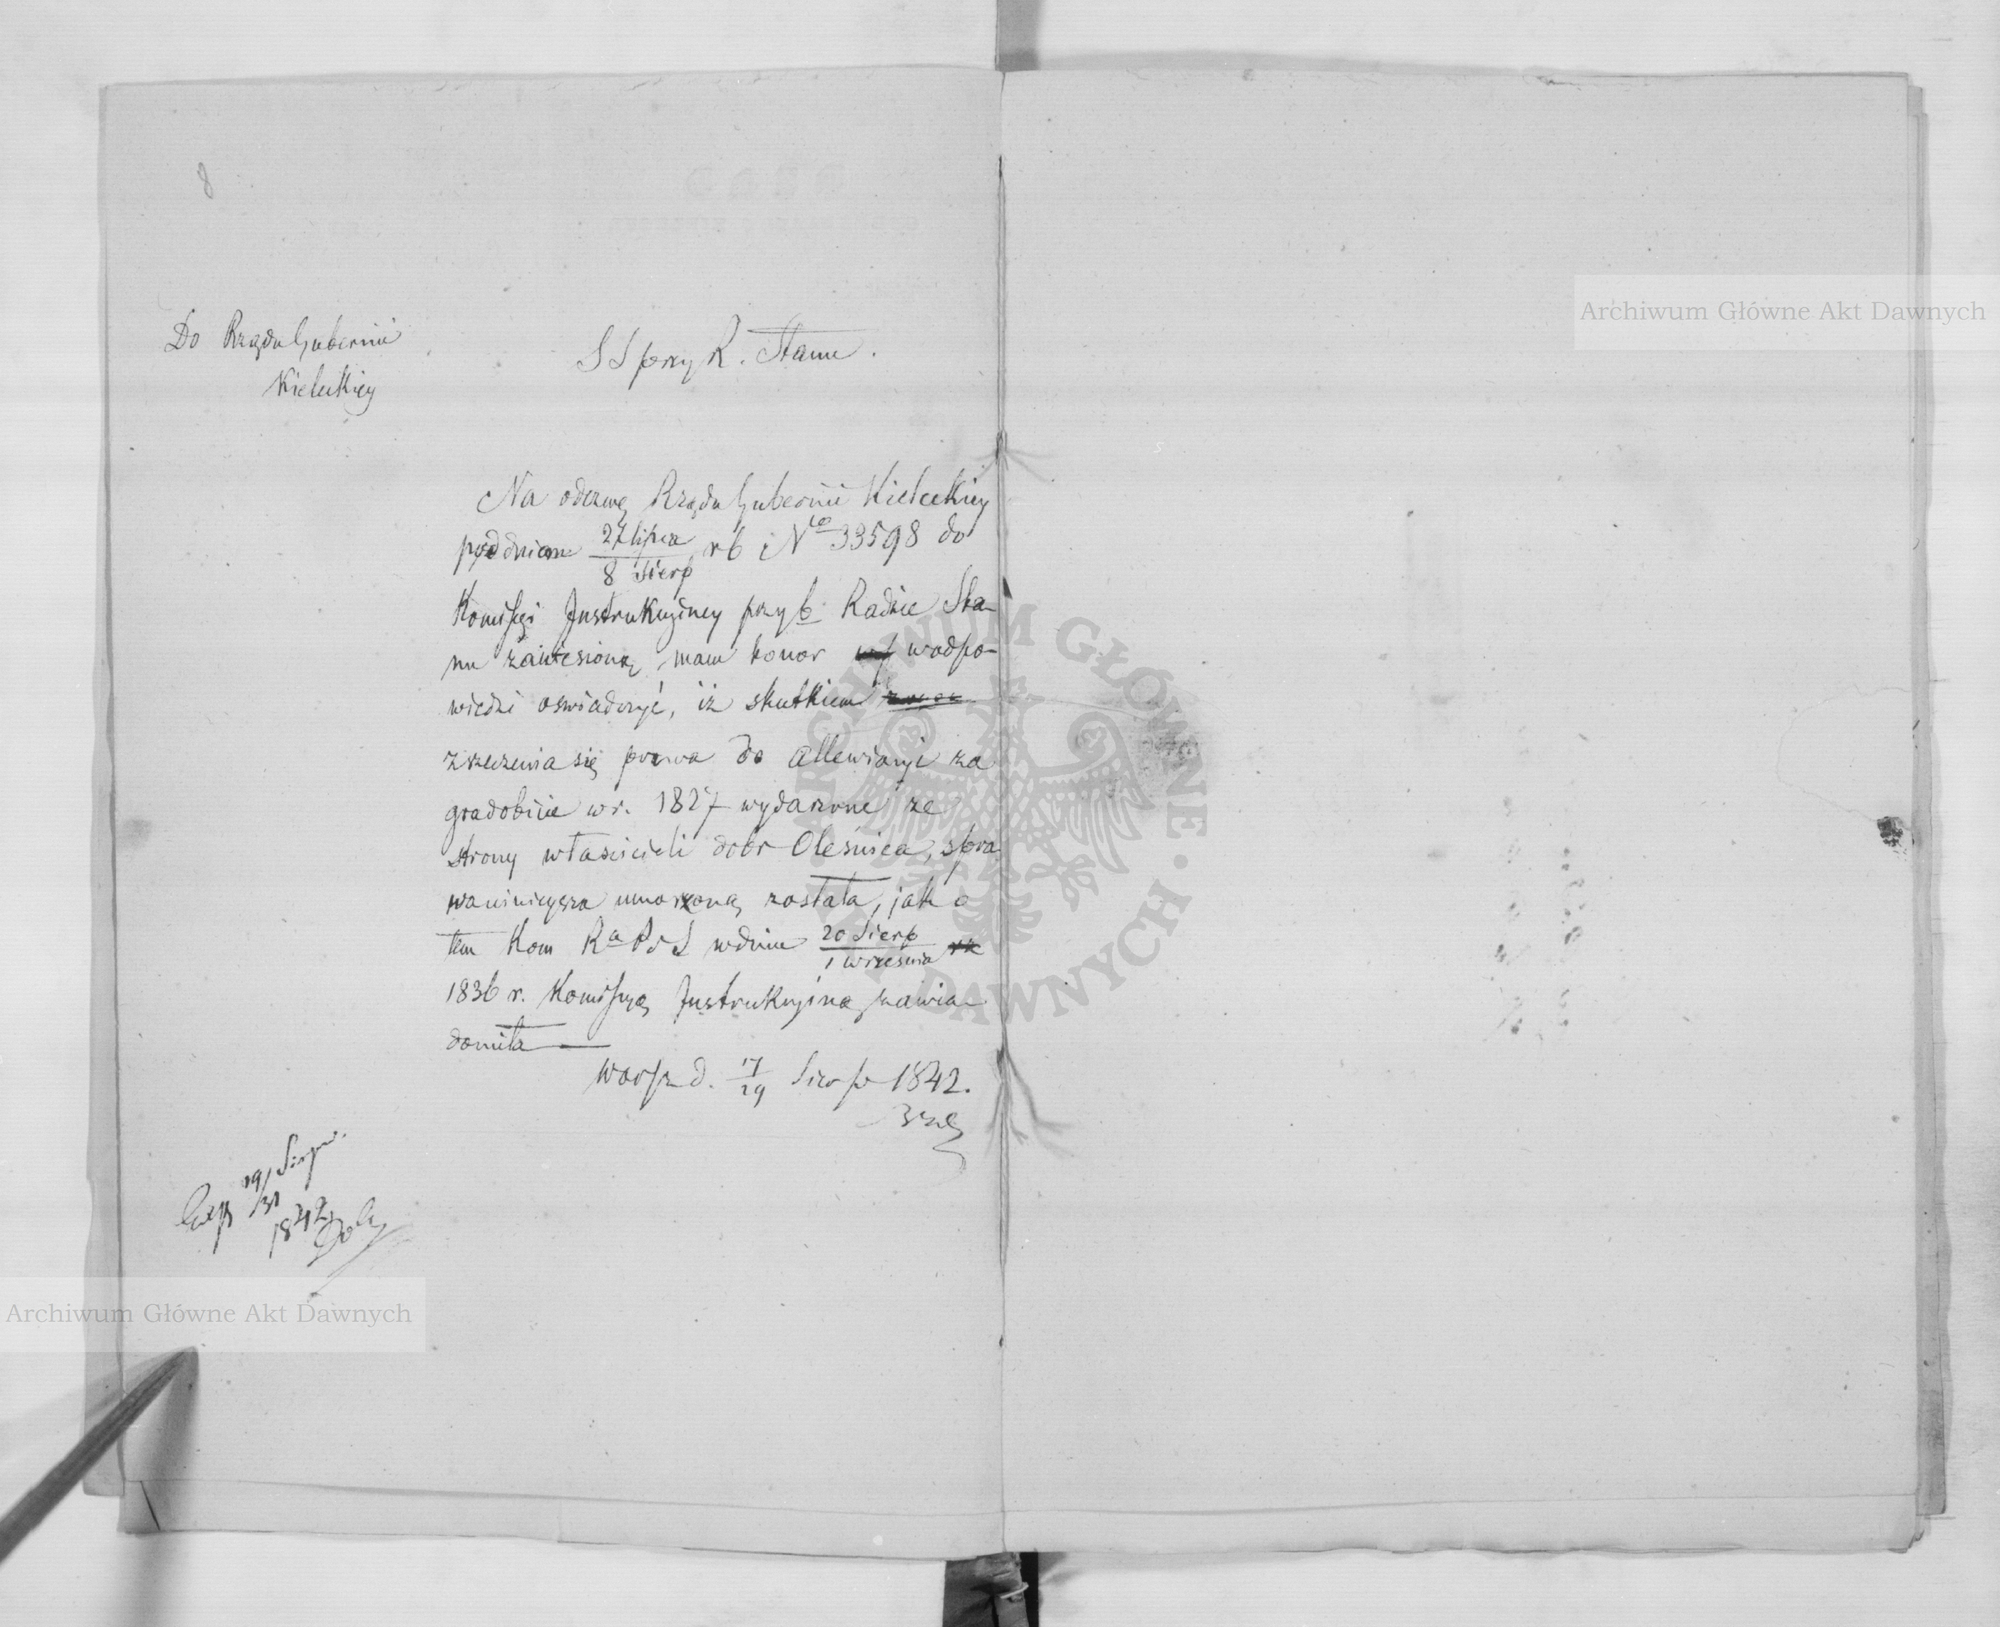 8
Do Rządu Gubernii
Kieleckiey
S S przy R. Stanu.
Na odezwę Rządu Gubernii Kieleckiey
pod dniem 27 lipca / 8 Sierp rb No 33598 do
Komissyi Instrukcyiney przy b Radzie Sta-
nu zaniesioną, mam honor wodpo-
wiedzi oświadczyć, iż skutkiem
zrzeczenia się prawa do allewiacyi za
gradobicie w r. 1827 wydarzone ze
strony właścicieli dobr Oleśnica, spra
wa ninieysza umorzoną została, jak o
tem Kom Ra P i S w dniu 20 Sierp / 1 września
1836 r. Komissyę Instrukcyiną zawia-
domiła —
Warsz d. 17/29 Sierp 1842.
Exp 19/31 Sierpn.
1842
Archiwum Główne Akt Dawnych
Archiwum Główne Akt Dawnych
ARCHIWUM GŁÓWNE AKT DAWNYCH